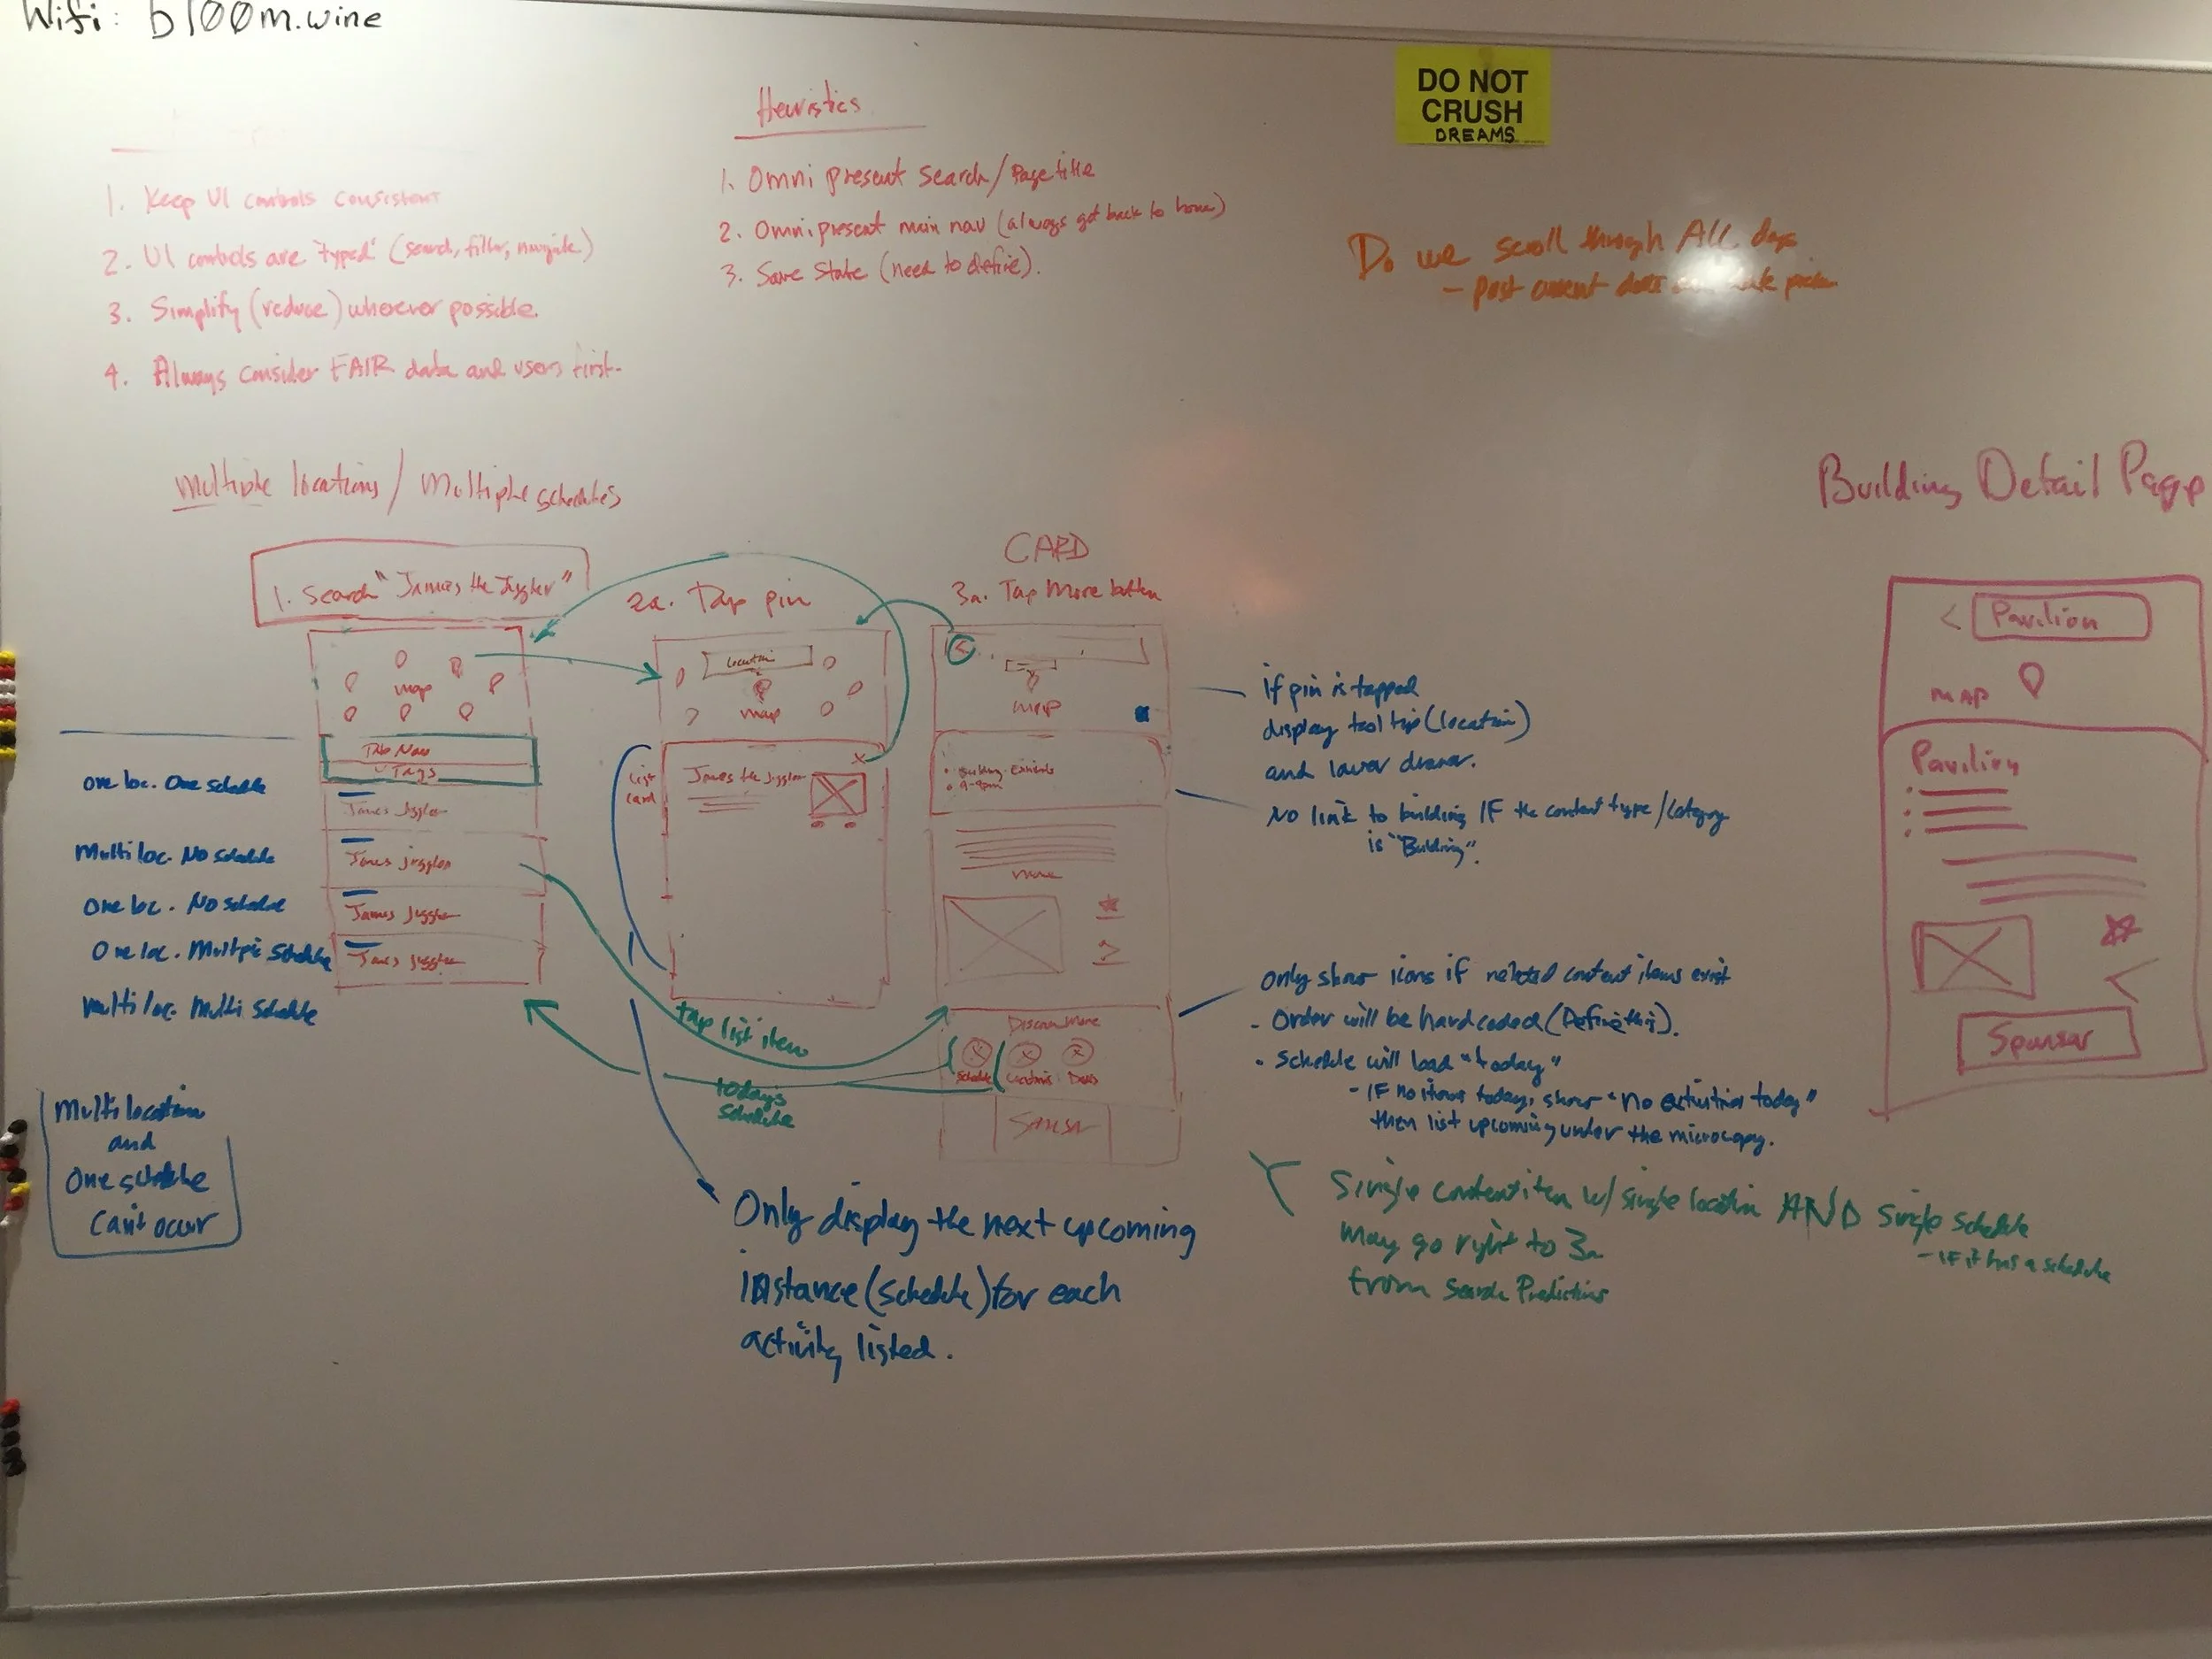 Wifi: b100m.wine
DO NOT
CRUSH
DREAMS
1. Keep UI controls consistent
2. UI controls are "typed" (search, filter, navigate)
3. Simplify (reduce) wherever possible.
4. Always consider FAIR data and users first.
Heuristics
1. Omni present search/Page title
2. Omnipresent main nav (always get back to home)
3. Save State (need to define).
Do we scroll through ALL days
- Past current date
Multiple locations/ Multiple schedules
1. Search "James the Juggler"
map
Tab Nav
Tags
James Juggler
James juggler
James Juggler
James Juggler
One loc. One schedule
Multi loc. No schedule
One loc. No schedule
One loc. Multple Schedule
Multi loc. Multi Schedule
Multi location
and
One schedule
Can't occur
2a. Tap pin
Location
map
list
card
James the Juggler
x
tap list item
todays
Schedule
CARD
3a. Tap More button
<
map
Building
9-9pm
more
Discover More
Schedule
Deals
Sponsor
if pin is tapped
display tool tip (location)
and lower drawer.
No link to building IF the content type/category
is "Building".
Only show icons if related content items exist
- Order will be hard coded (Define this).
- Schedule will load "today"
- IF no items today, show "no activities today"
then list upcoming under the microcopy.
Only display the next upcoming
instance (schedule) for each
activity listed.
Single content item w/ single location AND single schedule
- IF it has a schedule
may go right to 3a
from Search Predictions
Building Detail Page
< Pavilion
MAP
Pavilion
Sponsor